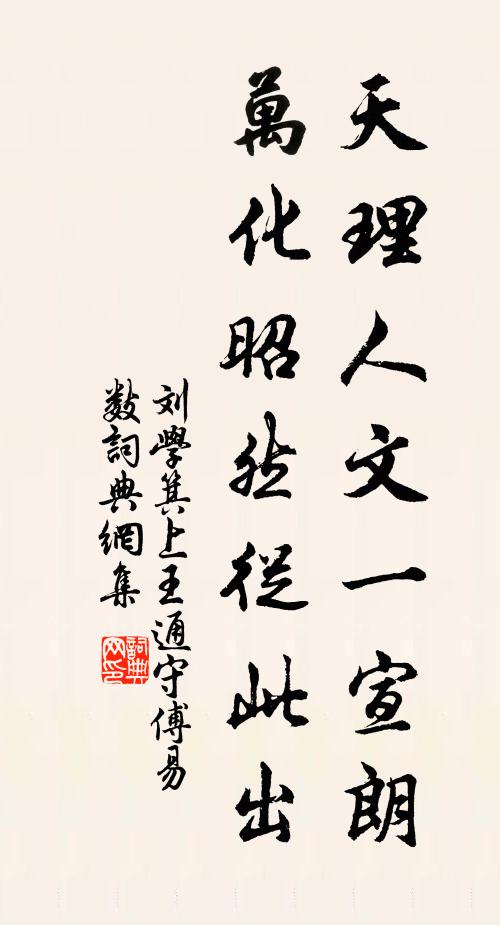 天理人文一宣朗
萬化昭然從此出
刘學箕上王通守傅易
数詞典網集
詞典網印